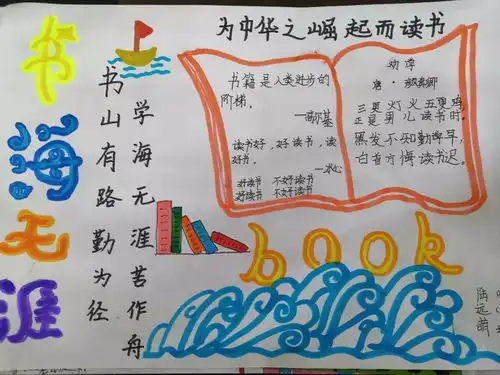 书海无涯
书山有路勤为径
学海无涯苦作舟
为中华之崛起而读书
书籍是人类进步的
阶梯。
—高尔基
读书好,好读书,读
好书。
—冰心
好读书 不好读书
好读书 不好读书
劝学
唐·颜真卿
三更灯火五更鸡,
正是男儿读书时。
黑发不知勤学早,
白首方悔读书迟。
book
陆远萌